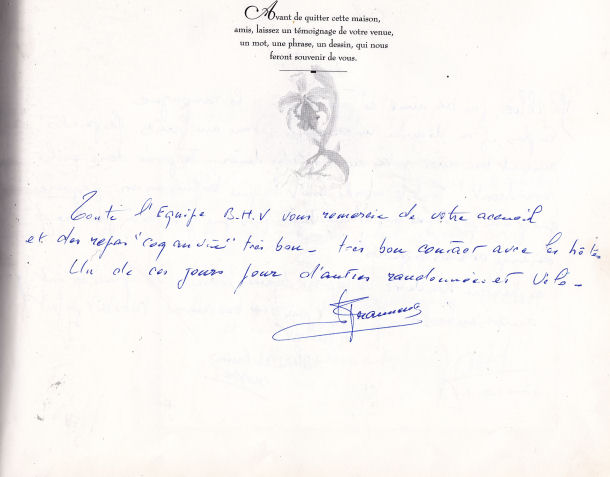 Avant de quitter cette maison,
amis, laissez un témoignage de votre venue,
un mot, une phrase, un dessin, qui nous
feront souvenir de vous.
Toute l'Equipe B.H.V vous remercie de votre accueil
et des repas "coq au vin" très bon - très bon contact avec les hôtes
Un de ces jours pour d'autres randonnées et Vélo -